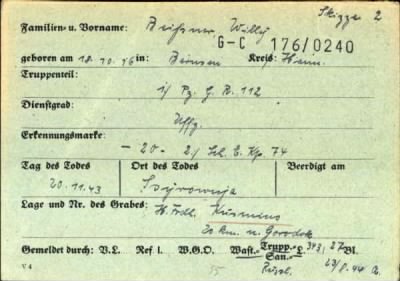 Skizze 2
Familien- u. Vorname: Beißner, Willy
G-C 176/0240
geboren am 18.10.16 in: Kreis:
Truppenteil:
i/ Pz. G. R. 112
Dienstgrad:
Uffz.
Erkennungsmarke:
- 20 - 2/ Sch. E. Kp. 74
Tag des Todes Ort des Todes Beerdigt am
20.11.43
Lage und Nr. des Grabes: H. Frdh. Kusmino
20 km. n. Gorodok
Gemeldet durch: V.L. Ref I. W.G.O. Wast.- Trupp.- L. 343, 27 Bl.
San.- 23/8.44
V 4